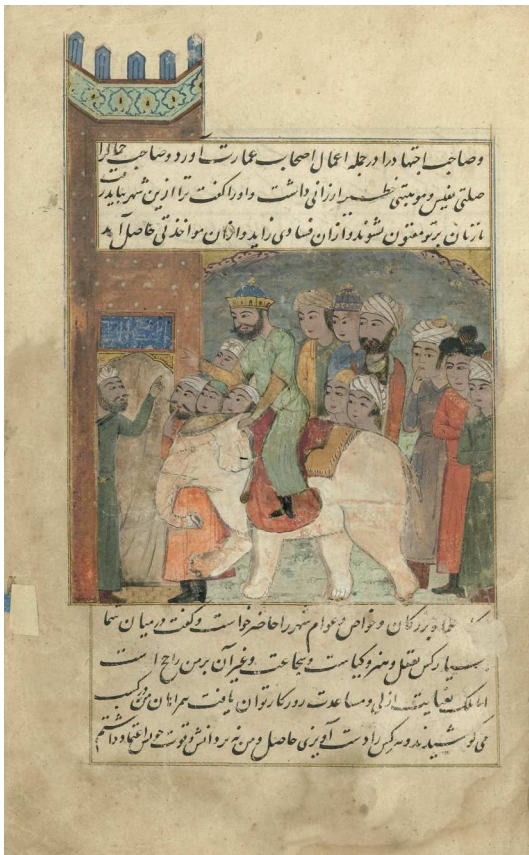 وصاحب اجتهاد را در جمله اعمال اصحاب عمارت آورد و صاحب جمال را
صلتی نفیس و موهبتی خطیر ارزانی داشت و او را گفت ترا ازین شهر بباید رفت
تا زنان بر تو مفتون نشوند و از ان فسادی زاید و از ان مواخذتی حاصل آید
علما و بزرگان و خواص و عوام شهر را حاضر خواست و گفت در میان شما
بسیار کس بعقل و هنر و کیاست و شجاعت و غیر آن بر من راجح است
اما ملک بعنایت ازلی و مساعدت روزکار توان یافت همراهان من در کسب
می کوشیدند و هر کس را دست آویزی حاصل و من نه بر دانش و قوت خویش اعتماد داشتم